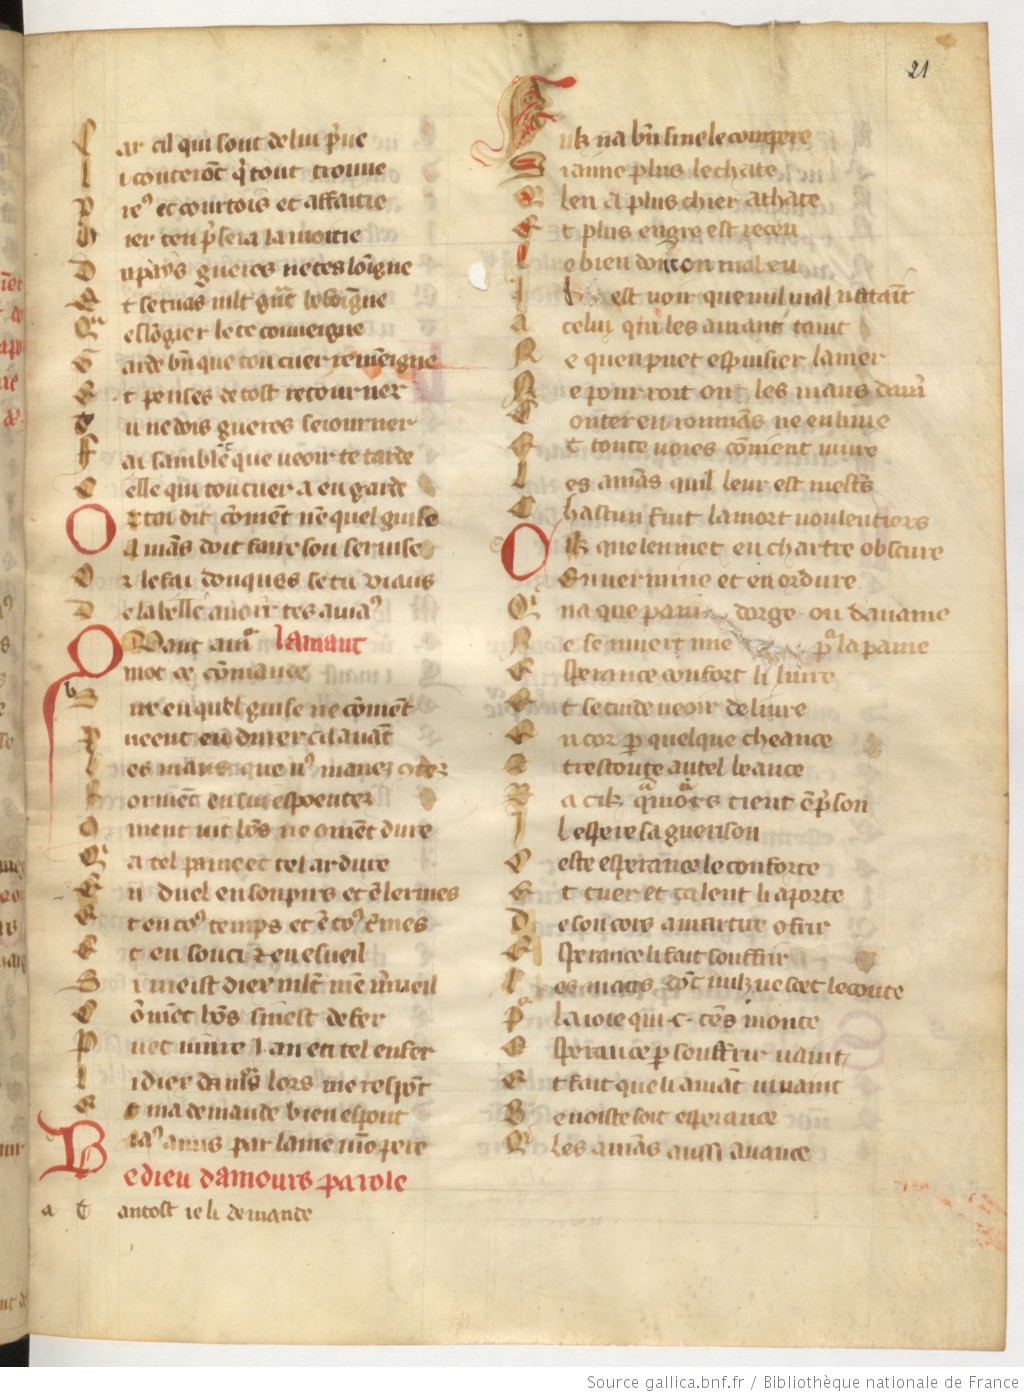 21
Car cil qui sont de lui pͥue
Li conteront qͥ tout trouue
Preꝰ et courtois et affaitie
Mer ten pͥsera la moitie
Du pays gueres ne tes loingne
Et se tu as mlt gͣnt besoingne
esloͥgier le te couueigne
Garde bn̄ que ton cuer remeigne
Et penses de tost retourner
Tu ne dois gueres seiourner
Fai samble que ueoir te tarde
Celle qui ton cuer a en garde
Or tai dit cōment nē quel guise
Amās doit faire son seruise
Or le fai donques se tu viaus
De la belle auoir tes auiaꝰ
Quant amͦ lamant
mot ce cōmande
ne en quel guise ne cōment
Pueent endurer cil amāt
Les maus que uꝰ mauez cōtez
Forment en sui espoentez
Cōment uit hōs ne cōment dure
En tel paine et tel ardure
En duel en soupirs et ē lermes
Et en toꝰ temps et ē toꝰ t̄mes
Et en souci ⁊ en esueil
Si meist dieu mlt̄ mē mͥueil
Cōmēt hōs sinest de fer
Puet uiure ⁊ an en tel enfer
Li dieu damͦs lors me respōt
Et ma demande bien espont
Biaꝰ amis par lame mō pere
Le dieu damours parole
a Tantost ie li demande
Nulz na bn̄ sine le compere
Si aime plus le chate
Len a plus chier achate
Et plus en gre est receu
Le bien dont on mal eu
Il est uoir que nul mal natāīt
A celui qui les amans taint
Ne quen puet espuisier la mer
Ne pourroit on les maus damͬ
Conter en rommās ne en liure
Et toute uoies cōment uiure
Les amās quil leur est mests
Chascun fuit la mort uoulentiers
Cilz que len met en chartre obscure
En uermine et en ordure
Qͥ na que pain dorge ou dauaine
Ne se muert mie pͦ la paine
Esperance confort li liure
Et se cuide ueoir deliure
Encor p̱ quelque cheance
Trestoute autel beance
A cilz qͣmōrs tient ē pͥson
Il espere sa guerison
Ceste esperance le conforte
Et cuer et talent li aporte
De son cors a martire ofrir
Esperance li fait souffrir
Les maus dōt nulz ne scet le conte
Pͦ la ioie qui .c. tēs monte
Esperance p̱ souffrir uaint
Et fait que li amāt uiuaint
Benoiste soit esperance
Qͥ les amās aussi auance
Source gallica.bnf.fr / Bibliothèque nationale de France